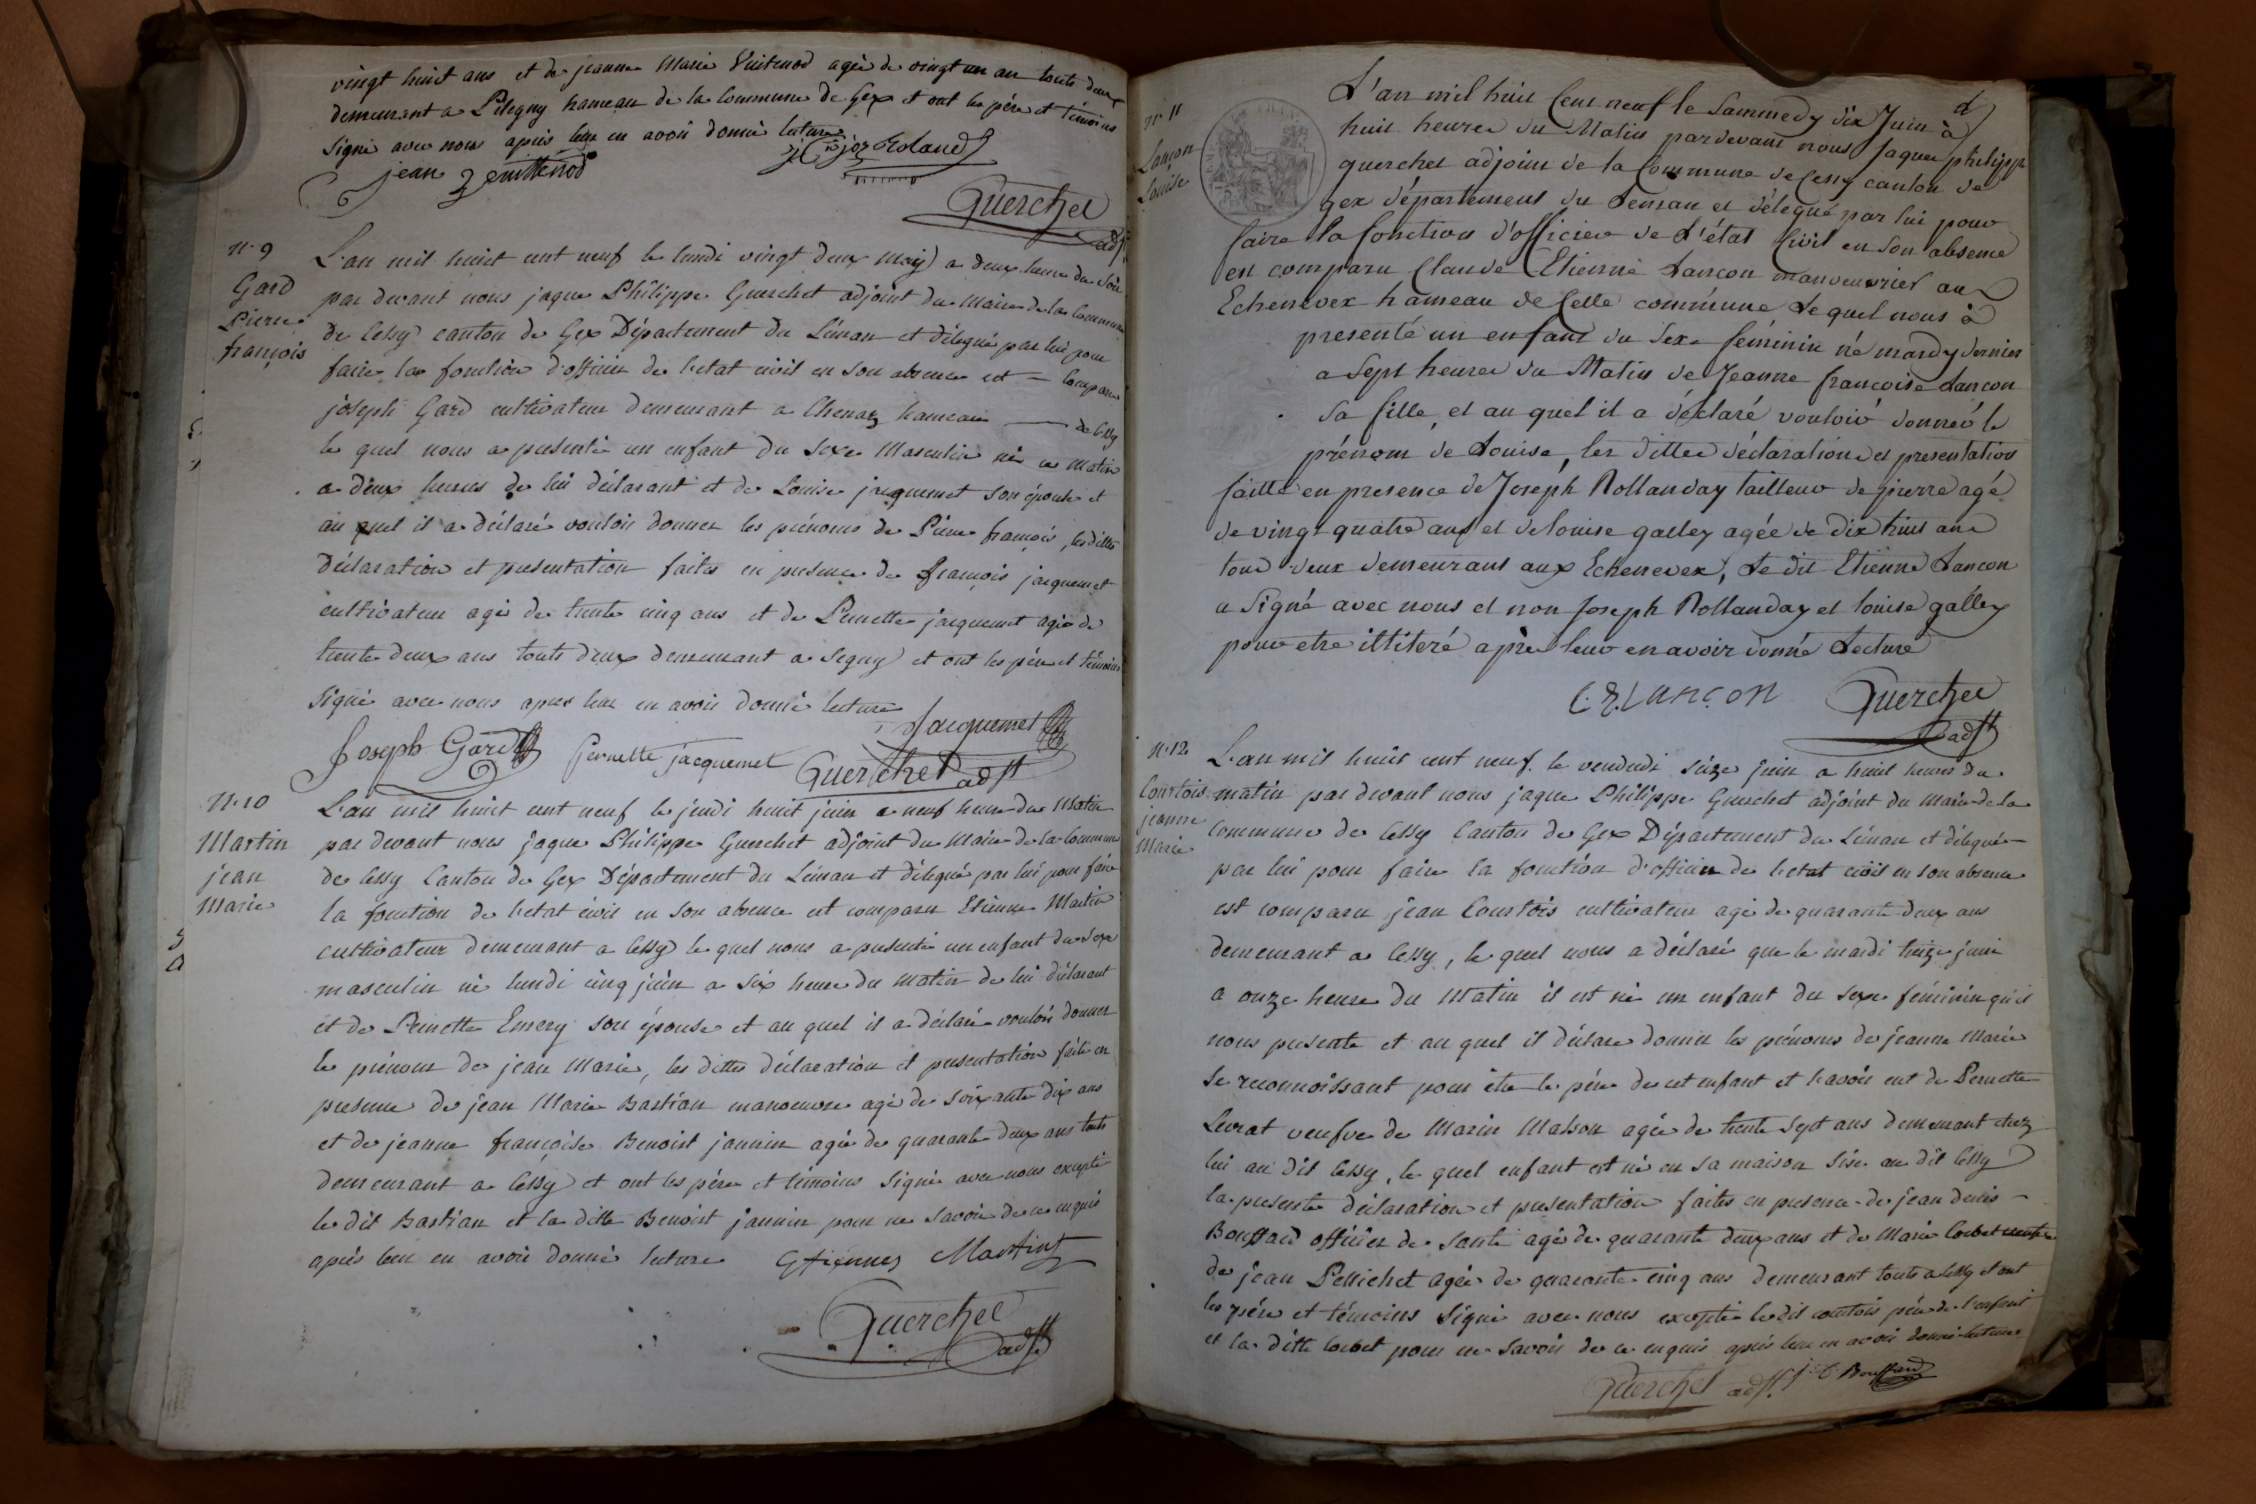 vingt huit ans et de jeanne Marie Vuitenod agée de vingt un an touts deux
demeurant a Pitegny hameau de la Commune de Gex et ont les pére et témoins
signé avec nous après leur en avoir donné lecture
jean
Guerchet
adjt
n. 9
Gard
Pierre
françois
L'an mil huit cent neuf le lundi vingt deux may a deux heure du soir
par devant nous jaque Philippe Guerchet adjoint du Maire de la Commune
de Cessy canton de Gex Département du Léman et délegué par lui pour
faire la fonction d'officier de l'etat civil en son absence est comparu
joseph Gard cultivateur demeurant a Chenaz hameau de Cessy
le quel nous a presenté un enfant du sexe Masculin né ce matin
a deux heures de lui déclarant et de Louise jacquemet son épouse et
au quel il a déclaré vouloir donner les prénoms de Pierre françois, les dittes
Déclaration et presentation faites en presence de françois jacquemet
cultivateur agé de trente cinq ans et de Pernette jacquemet agée de
trente deux ans touts deux demeurant a Segny et ont les pére et témoins
signé avec nous apres leur en avoir donné lecture
Joseph Gard pernette jacquemet Jacquemet
Guerchet adjt
n. 10
Martin
jean
Marie
L'an mil huit cent neuf le jeudi huit juin a neuf heure du Matin
par devant nous jaque Philippe Guerchet adjoint du Maire de la Commune
de Cessy Canton de Gex Département du Léman et délegué par lui pour faire
la fonction de l'etat civil en son absence est comparu Etienne Martin
cultivateur demeurant a Cessy le quel nous a presenté un enfant du sexe
masculin né lundi cinq juin a six heure du matin de lui déclarant
et de Pernette Emery son épouse et au quel il a déclaré vouloir donner
le prénom de jean Marie, les dittes déclaration et presentation faite en
presence de jean Marie Bastian manoeuvre agé de soixante dix ans
et de jeanne françoise Benoist jannin agée de quarante deux ans touts
demeurant a Cessy et ont les pére et témoins signé avec nous excepté
le dit Bastian et la ditte Benoist jannin pour ne savoir de ce enquis
après leur en avoir donné lecture Etiennes Martin
Guerchet
adjt
n. 11
Lançon
Louise
L'an mil huit Cent neuf le Sammedy dix Juin à
huit heures du Matin pardevant nous Jaques philippe
querchet adjoint de la Commune de Cessy canton de
gex département du Leman et délegué par lui pour
faire la fonction d'officier de L'état Civil en son absence
est comparu Claude Etienne Lancon manoeuvrier aux
Echenevex hameau de Cette commune Lequel nous à
presenté un enfant du Sexe féminin né mardy dernier
a Sept heures du Matin de Jeanne françoise Lancon
sa fille, et au quel il a déclaré vouloir donner le
prénom de Louise, les dittes déclarations et presentation
faitte en presence de Joseph Rollanday tailleur de pierre agé
de vingt quatre ans et de louise galley agée de dix huit ans
tous deux demeurant aux Echenevex, Le dit Etienne Lancon
a Signé avec nous et non Joseph Rollanday et louise galley
pour etre illiteré après leur en avoir donné Lecture
C. E. LANÇON Guerchet
adjt
n. 12
Courtois
jeanne
Marie
L'an mil huit cent neuf. le vendredi seize juin a huit heures du
matin par devant nous jaque Philippe Guerchet adjoint du Maire de la
Commune de Cessy Canton de Gex Département du Léman et délegué
par lui pour faire la fonction d'officier de l'etat civil en son absence
est comparu jean Courtois cultivateur agé de quarante deux ans
demeurant a Cessy, le quel nous a déclaré que le mardi treize juin
a onze heure du Matin il est né un enfant du sexe féminin qu'il
nous presente et au quel il déclare donner les prénoms de jeanne Marie
se reconnoissant pour être le pére de cet enfant et l'avoir eut de Pernette
Levrat veufve de Marin Masson agée de trente sept ans demeurant chez
lui au dit Cessy, le quel enfant est né en sa maison sise au dit Cessy
la presente déclaration et presentation faites en presence de jean denis
Bouffard officier de santé agé de quarante deux ans et de Marie Corbet
de jean Pellichet agée de quarante cinq ans demeurant touts a Cessy et ont
les pére et témoins signé avec nous excepté le dit courtois pére de l'enfant
et la ditte Corbet pour ne savoir de ce enquis après leur en avoir donné lecture
Guerchet adjt. J. D. Bouffard